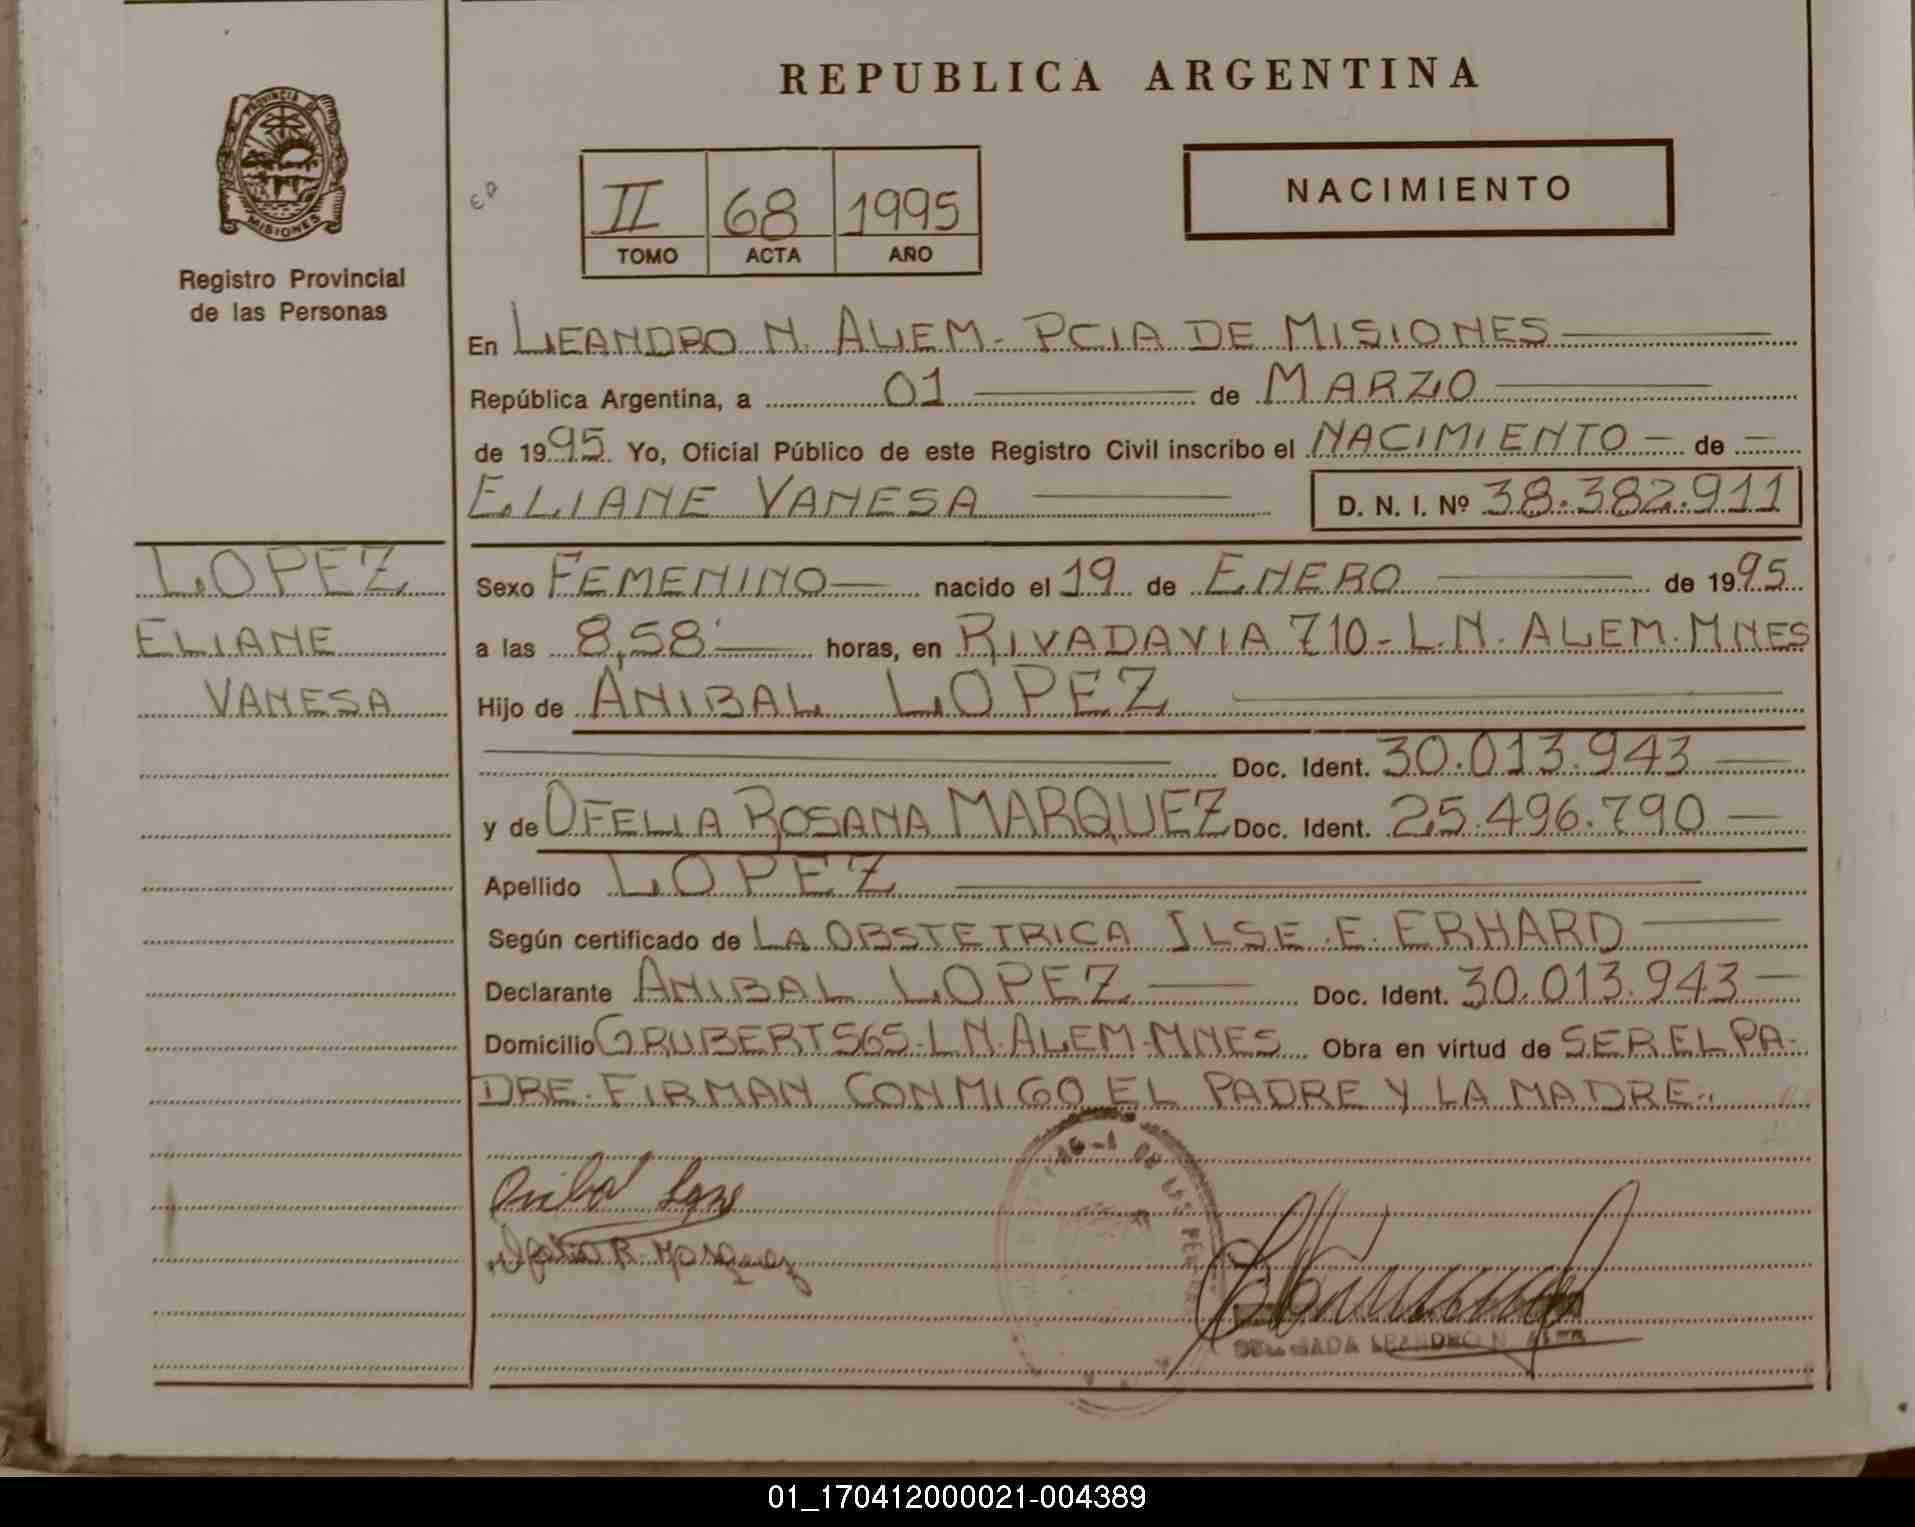 REPUBLICA ARGENTINA
PROVINCIA D
MISIONES
Registro Provincial
de las Personas
II 68 1995
TOMO ACTA AÑO
NACIMIENTO
En LEANDRO N. ALEM - PCIA DE MISIONES
República Argentina, a 01 de MARZO
de 1995 Yo, Oficial Público de este Registro Civil inscribo el NACIMIENTO - de -
ELIANE VANESA D. N. I. Nº 38.382.911
LOPEZ
ELIANE
VANESA
Sexo FEMENINO nacido el 19 de ENERO de 1995
a las 8,58' horas, en RIVADAVIA 710 - L.N. ALEM. MNES
Hijo de ANIBAL LOPEZ
Doc. Ident. 30.013.943
y de OFELIA ROSANA MARQUEZ Doc. Ident. 25.496.790
Apellido LOPEZ
Según certificado de LA OBSTETRICA ILSE E. ERHARD
Declarante ANIBAL LOPEZ Doc. Ident. 30.013.943
Domicilio GRUBERT 565 - L.N. ALEM - MNES Obra en virtud de SER EL PA-
DRE. FIRMAN CONMIGO EL PADRE Y LA MADRE.
Anibal Lopez
Ofelia R. Marquez
DELEGADA LEANDRO N. ALEM
01_170412000021-004389